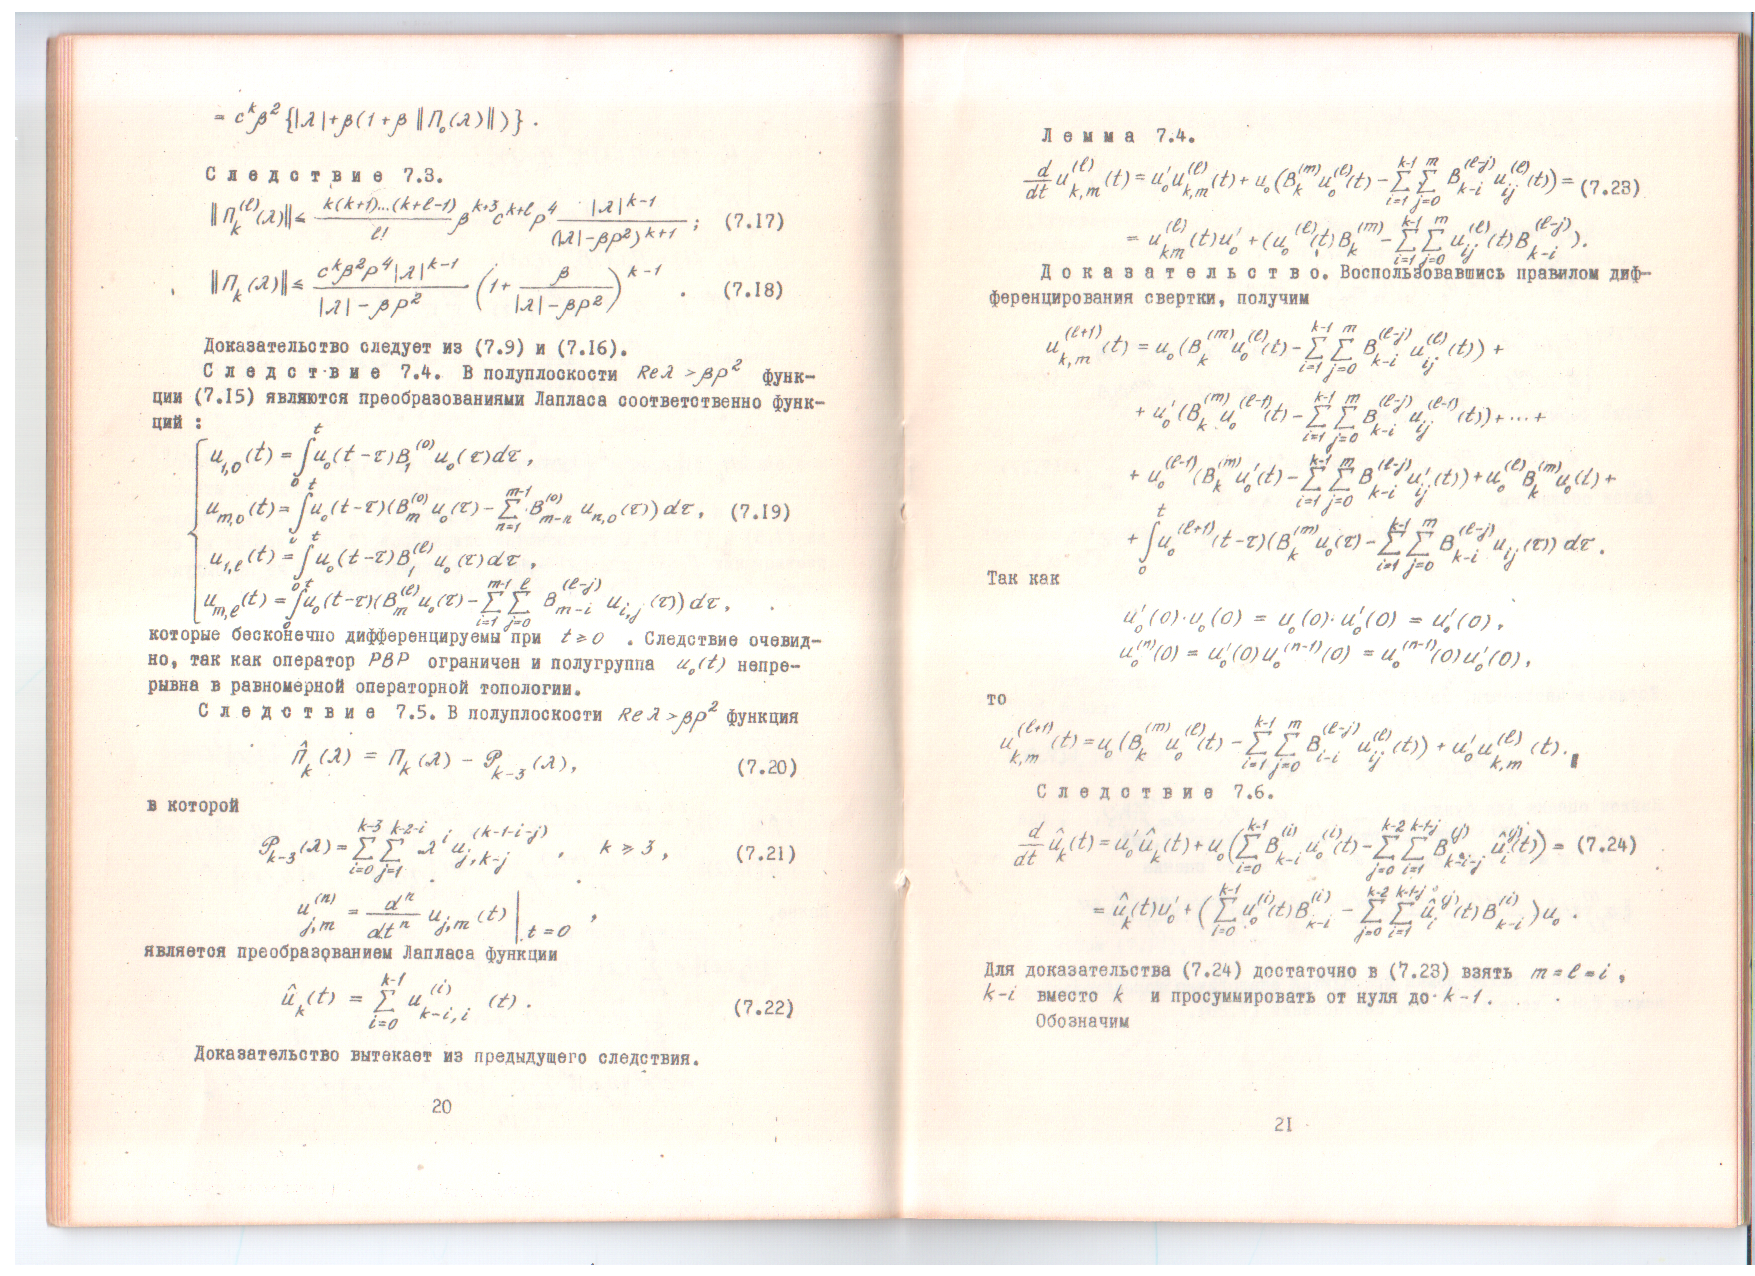 = c^k β^2 {|λ|+β(1+β ‖П_0(λ)‖)} .
Следствие 7.3.
‖П_k^(ℓ)(λ)‖ ≤ k(k+1)...(k+ℓ-1)/ℓ! β^{k+3} c^{k+ℓ} ρ^4 |λ|^{k-1}/(|λ|-βρ^2)^{k+1} ; (7.17)
‖П_k(λ)‖ ≤ c^k β^2 ρ^4 |λ|^{k-1}/(|λ|-βρ^2) (1+ β/(|λ|-βρ^2))^{k-1} . (7.18)
Доказательство следует из (7.9) и (7.16).
Следствие 7.4. В полуплоскости Reλ >βρ^2 функ-
ции (7.15) являются преобразованиями Лапласа соответственно функ-
ций :
u_{1,0}(t) = ∫_0^t u_0(t-τ)B_1^(0) u_0(τ)dτ ,
u_{m,0}(t) = ∫_0^t u_0(t-τ)(B_m^(0) u_0(τ) - Σ_{n=1}^{m-1} B_{m-n}^(0) u_{n,0}(τ)) dτ , (7.19)
u_{1,ℓ}(t) = ∫_0^t u_0(t-τ)B_1^(ℓ) u_0(τ)dτ ,
u_{m,ℓ}(t) = ∫_0^t u_0(t-τ)(B_m^(ℓ) u_0(τ) - Σ_{i=1}^{m-1} Σ_{j=0}^{ℓ} B_{m-i}^(ℓ-j) u_{i,j}(τ)) dτ ,
которые бесконечно дифференцируемы при t ≥ 0 . Следствие очевид-
но, так как оператор PBP ограничен и полугруппа u_0(t) непре-
рывна в равномерной операторной топологии.
Следствие 7.5. В полуплоскости Reλ >βρ^2 функция
П̂_k(λ) = П_k(λ) - 𝒫_{k-3}(λ), (7.20)
в которой
𝒫_{k-3}(λ) = Σ_{i=0}^{k-3} Σ_{j=1}^{k-2-i} λ^i u_{j,k-j}^(k-1-i-j) , k ≥ 3 , (7.21)
u_{j,m}^(n) = d^n/dt^n u_{j,m}(t) |_{t=0} ,
является преобразованием Лапласа функции
û_k(t) = Σ_{i=0}^{k-1} u_{k-i,i}^(i) (t) . (7.22)
Доказательство вытекает из предыдущего следствия.
20
Лемма 7.4.
d/dt u_{k,m}^(ℓ)(t) = u_0' u_{k,m}^(ℓ)(t) + u_0(B_k^(m) u_0^(ℓ)(t) - Σ_{i=1}^{k-1} Σ_{j=0}^{m} B_{k-i}^(ℓ-j) u_{ij}^(ℓ)(t)) = (7.23)
= u_{km}^(ℓ)(t)u_0' + (u_0^(ℓ)(t)B_k^(m) - Σ_{i=1}^{k-1} Σ_{j=0}^{m} u_{ij}^(ℓ)(t)B_{k-i}^(ℓ-j)).
Доказательство. Воспользовавшись правилом диф-
ференцирования свертки, получим
u_{k,m}^(ℓ+1)(t) = u_0(B_k^(m) u_0^(ℓ)(t) - Σ_{i=1}^{k-1} Σ_{j=0}^{m} B_{k-i}^(ℓ-j) u_{ij}^(ℓ)(t)) +
+ u_0'(B_k^(m) u_0^(ℓ-1)(t) - Σ_{i=1}^{k-1} Σ_{j=0}^{m} B_{k-i}^(ℓ-j) u_{ij}^(ℓ-1)(t)) + ... +
+ u_0^(ℓ-1)(B_k^(m) u_0'(t) - Σ_{i=1}^{k-1} Σ_{j=0}^{m} B_{k-i}^(ℓ-j) u_{ij}'(t)) + u_0^(ℓ) B_k^(m) u_0(t) +
+ ∫_0^t u_0^(ℓ+1)(t-τ)(B_k^(m) u_0(τ) - Σ_{i=1}^{k-1} Σ_{j=0}^{m} B_{k-i}^(ℓ-j) u_{ij}(τ)) dτ .
Так как
u_0'(0)·u_0(0) = u_0(0)·u_0'(0) = u_0'(0) ,
u_0^(n)(0) = u_0'(0)u_0^(n-1)(0) = u_0^(n-1)(0)u_0'(0),
то
u_{k,m}^(ℓ+1)(t) = u_0(B_k^(m) u_0^(ℓ)(t) - Σ_{i=1}^{k-1} Σ_{j=0}^{m} B_{i-i}^(ℓ-j) u_{ij}^(ℓ)(t)) + u_0' u_{k,m}^(ℓ)(t).
Следствие 7.6.
d/dt û_k(t) = u_0' û_k(t) + u_0(Σ_{i=0}^{k-1} B_{k-i}^(i) u_0^(i)(t) - Σ_{j=0}^{k-2} Σ_{i=1}^{k-1-j} B_{k-i-j}^(j) û_i^(j)(t)) = (7.24)
= û_k(t)u_0' + (Σ_{i=0}^{k-1} u_0^(i)(t)B_{k-i}^(i) - Σ_{j=0}^{k-2} Σ_{i=1}^{k-1-j} û_i^(j)(t)B_{k-i}^(i))u_0 .
Для доказательства (7.24) достаточно в (7.23) взять m = ℓ = i ,
k-i вместо k и просуммировать от нуля до k-1 .
Обозначим
21